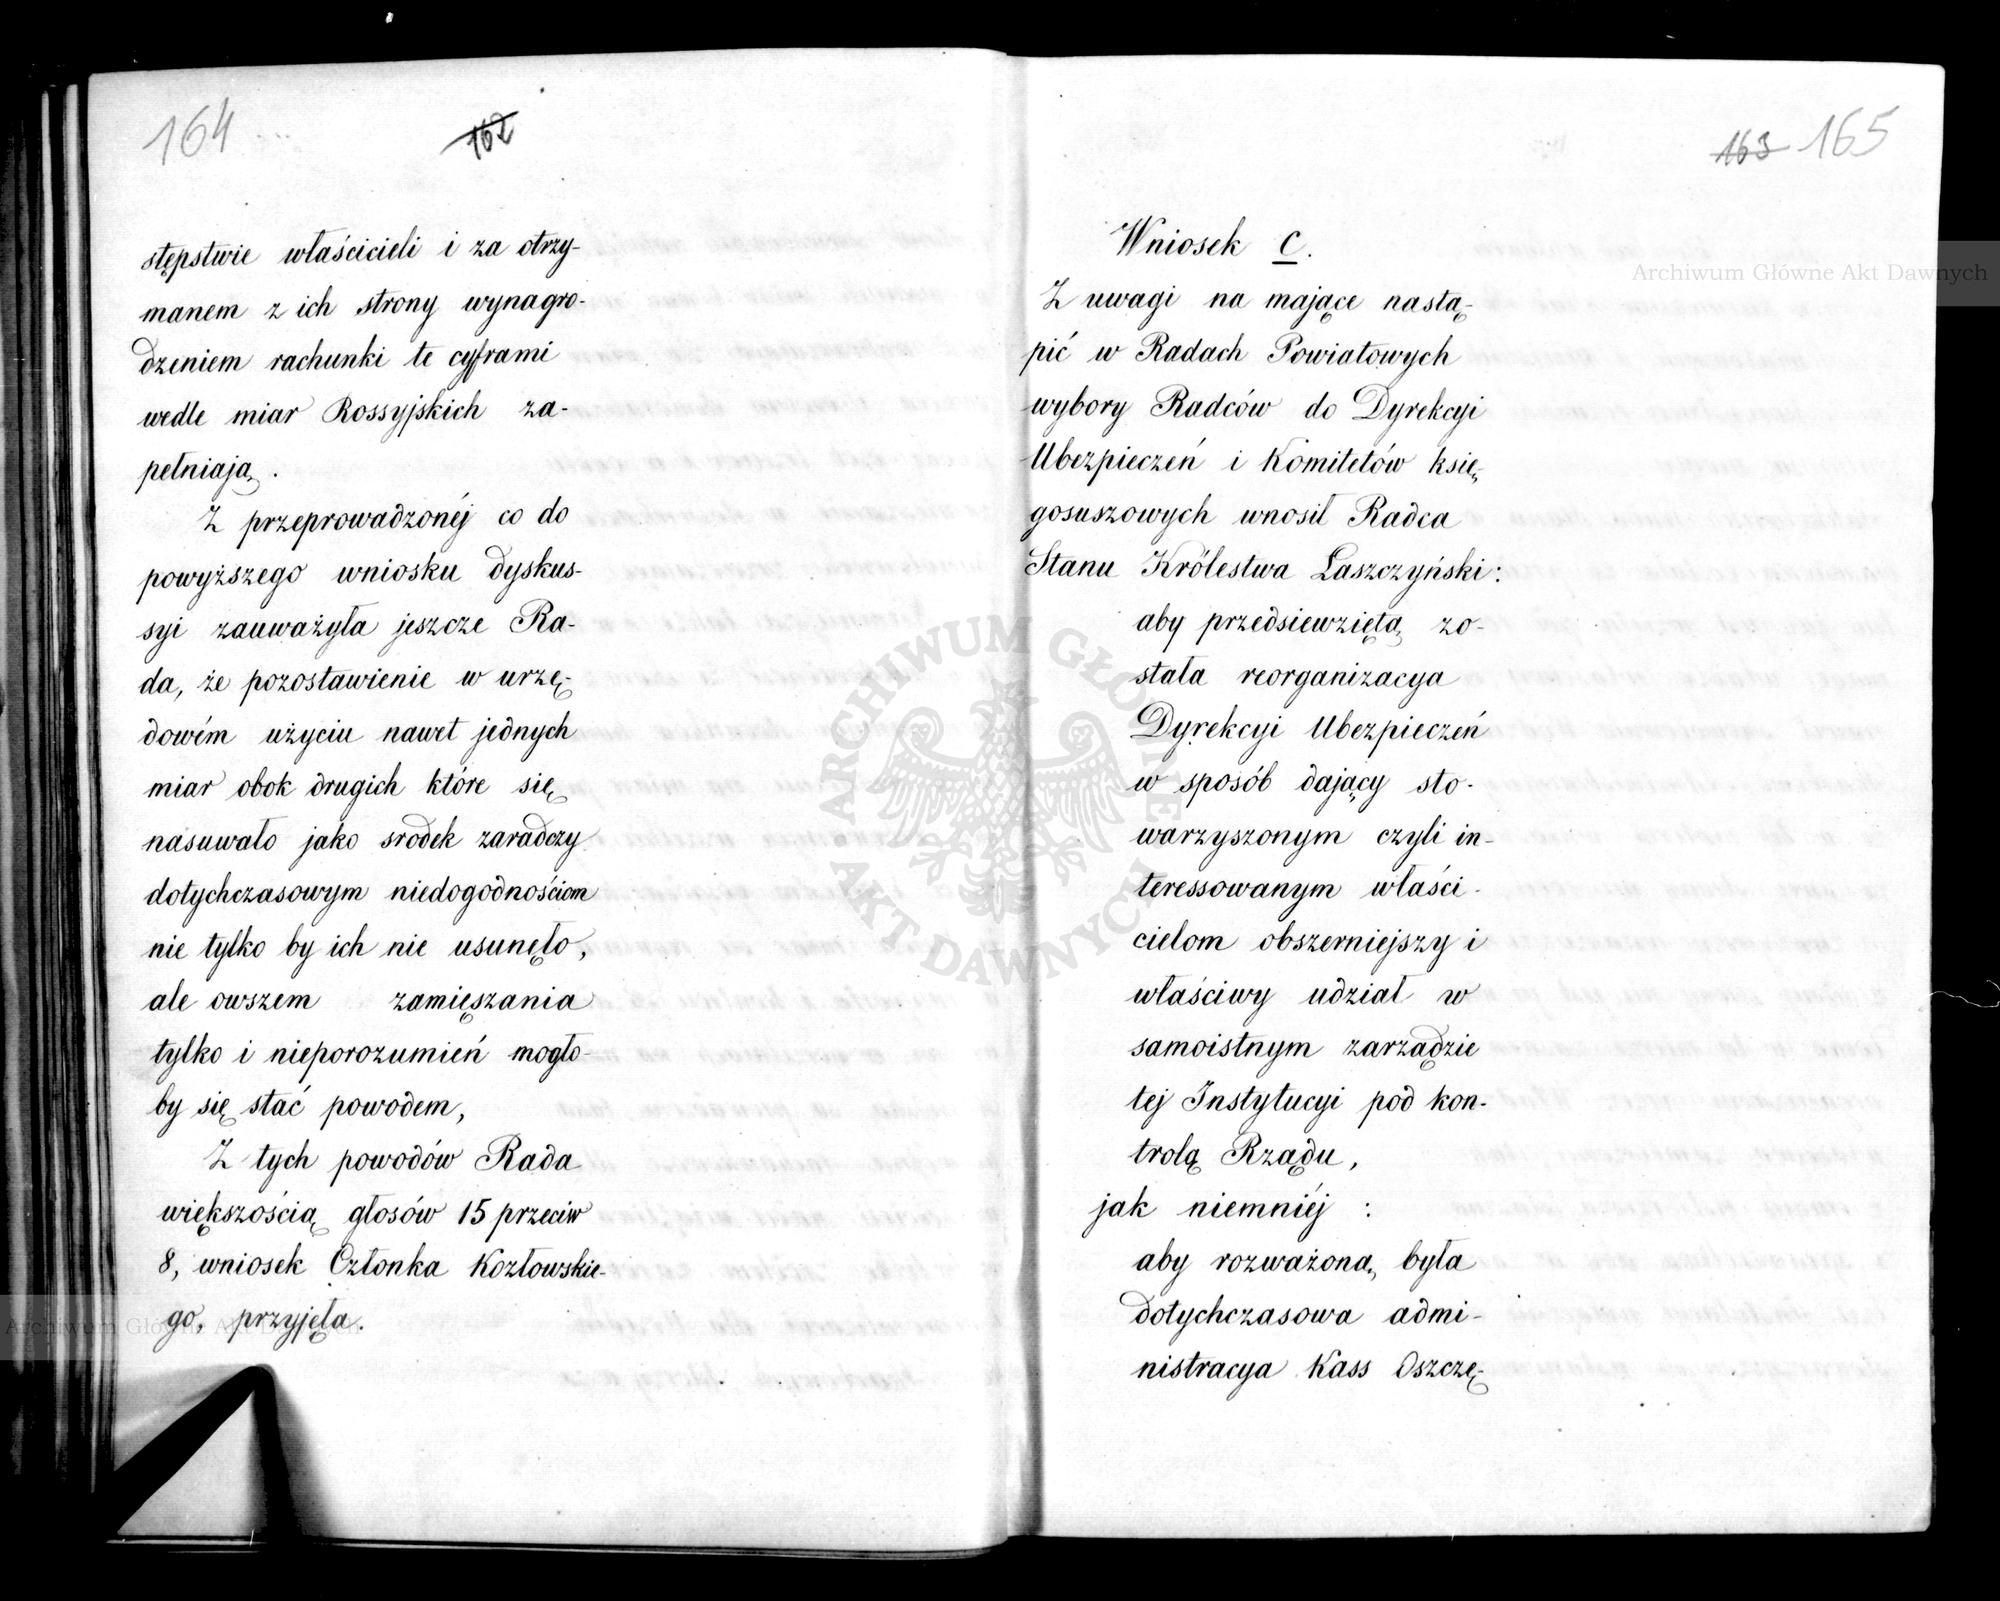 164
162
stępstwie właścicieli i za otrzy-
manem z ich strony wynagro-
dzeniem rachunki te cyframi
wedle miar Rossyjskich za-
pełniają.
Z przeprowadzonéj co do
powyższego wniosku dyskus-
syi zauważyła jeszcze Ra-
da, że pozostawienie w urzę-
dowém użyciu nawet jednych
miar obok drugich które się
nasuwało jako srodek zaradczy
dotychczasowym niedogodnościom
nie tylko by ich nie usunęło,
ale owszem zamięszania
tylko i nieporozumień mogło-
by się stać powodem,
Z tych powodów Rada
większością głosów 15 przeciw
8, wniosek Członka Kozłowskie-
go, przyjęła.
163 165
Wniosek C.
Z uwagi na mające nastą-
pić w Radach Powiatowych
wybory Radców do Dyrekcyi
Ubezpieczeń i Komitetów księ-
gosuszowych wnosił Radca
Stanu Królestwa Łaszczyński:
aby przedsiewziętą zo-
stała reorganizacya
Dyrekcyi Ubezpieczeń
w sposób dający sto-
warzyszonym czyli in-
teressowanym właści-
cielom obszerniejszy i
właściwy udział w
samoistnym zarządzie
tej Instytucyi pod kon-
trolą Rządu,
jak niemniéj :
aby rozważoną była
dotychczasowa admi-
nistracya Kass Oszczę-
Archiwum Główne Akt Dawnych
ARCHIWUM GŁÓWNE
AKT DAWNYCH
Archiwum Główne Akt Dawnych